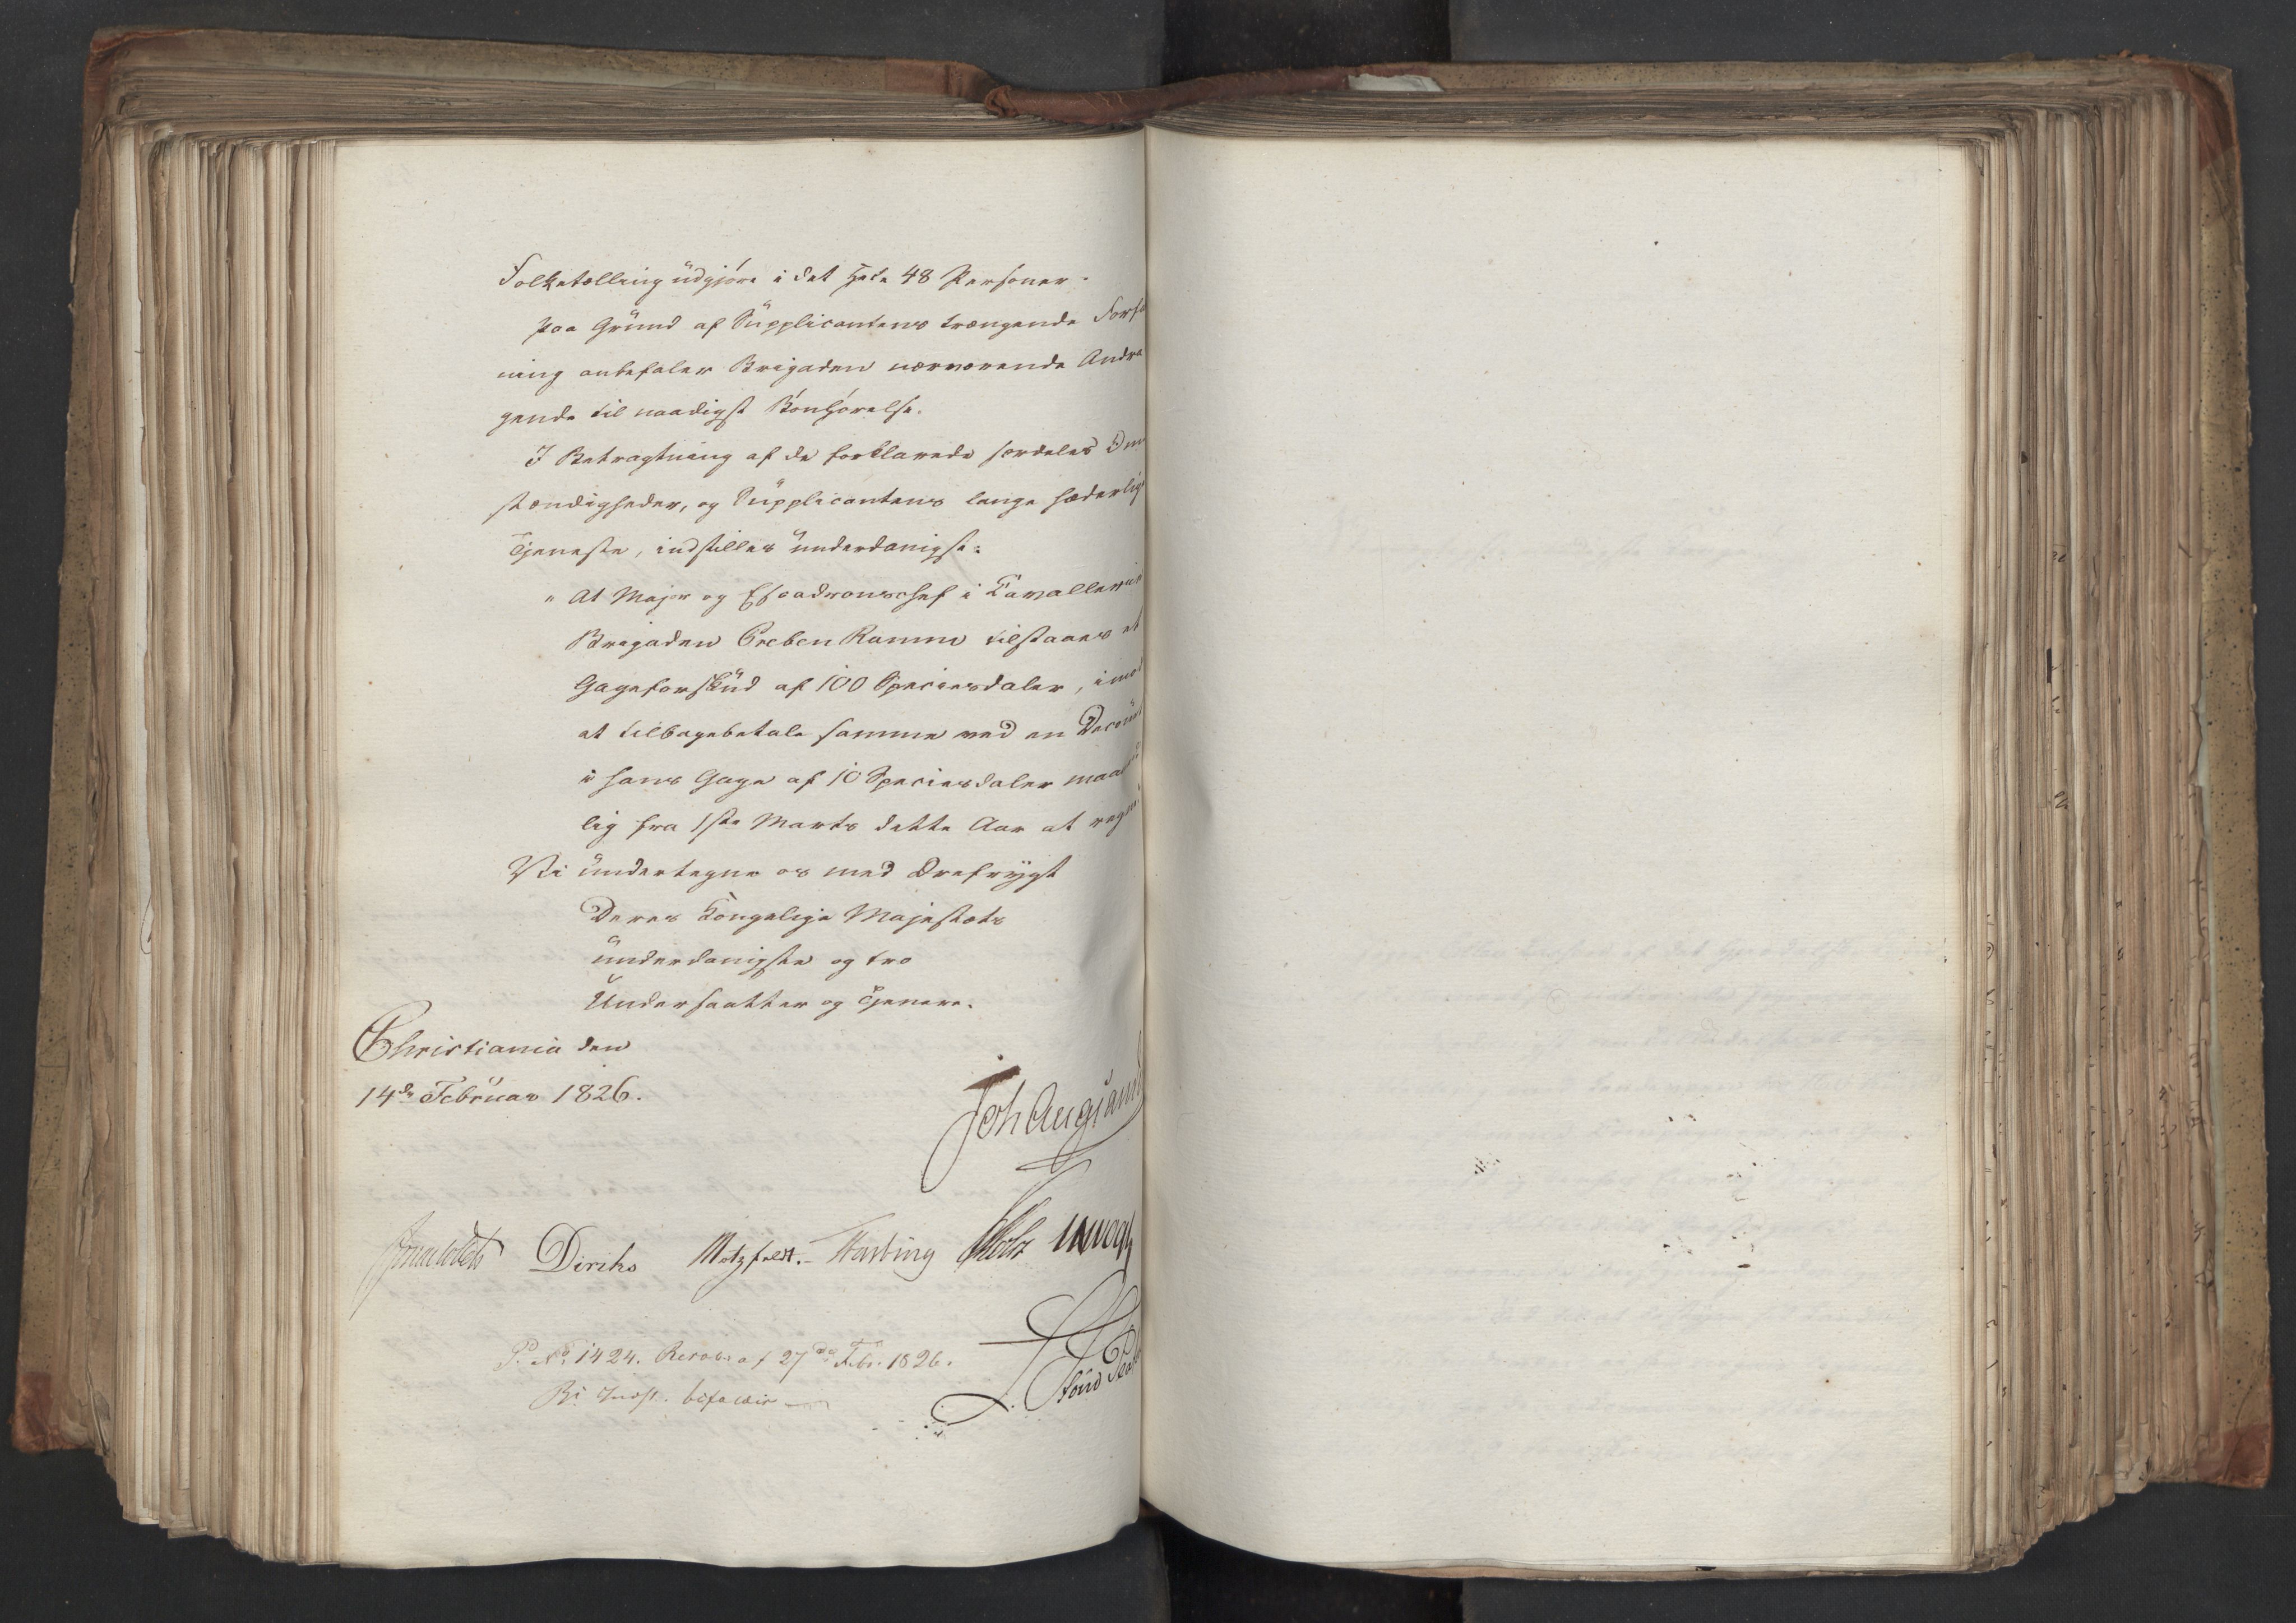 Folketælling üdgjøre i det Hele 48 Personer.
Paa Gründ af Süpplicantens trængende Forfa
ning anbefaler Brigaden nærværende Andra
gende til naadigst Bønhørelse.
I Betragtning af de forklarede særdeles Om
stændigheder, og Süpplicantens lange hæderlige
Tjeneste, indstilles ünderdanigst:
" At Major og Escadronschef i Cavallerie
Brigaden Preben Ramm tilstaaes et
Gageforskud af 100 Speciesdaler, imod
at tilbagebetale samme ved en Decoürt
i hans Gage af 10 Speciesdaler maaned
lig fra 1ste Marts dette Aar at regne
Vi ündertegne os med Ærefrygt
Deres Kongelige Majestæts
ünderdanigste og tro
Undersaatter og Tjenere.
Christiania den
14de Februar 1826.
Joh Aug Sand
Diriks Motzfeldt. Fasting
P. No. 1424. Resol. af 27de Febr. 1826.
Bi Indst. bifaldes